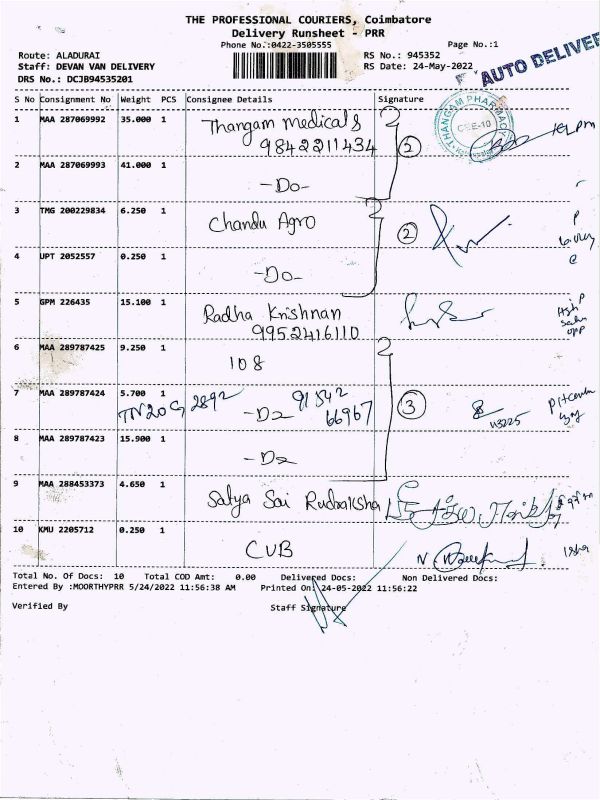 THE PROFESSIONAL COURIERS, Coimbatore
Delivery Runsheet - PRR
Phone No.:0422-3505555
Page No.:1
Route: ALADURAI
RS No.: 945352
Staff: DEVAN VAN DELIVERY
RS Date: 24-May-2022
DRS No.: DCJB94535201
AUTO DELIVER
S No Consignment No Weight PCS Consignee Details Signature
1 MAA 287069992 35.000 1 Thangam Medicals
9842211434 2
THANGAM PHARMACY
2 MAA 287069993 41.000 1 -Do-
3 TMG 200229834 6.250 1 Chandu Agro 2
4 UPT 2052557 0.250 1 -Do-
5 GPM 226435 15.100 1 Radha Krishnan
9952416110
6 MAA 289787425 9.250 1 108
7 MAA 289787424 5.700 1 -Do- 91542
66967 3
TN20 G 2892
8 MAA 289787423 15.900 1 -Do-
9 MAA 288453373 4.650 1 Satya Sai Rudraksha
10 KMU 2205712 0.250 1 CUB
Total No. Of Docs: 10 Total COD Amt: 0.00 Delivered Docs: Non Delivered Docs:
Entered By :MOORTHYPRR 5/24/2022 11:56:38 AM Printed On: 24-05-2022 11:56:22
Verified By Staff Signature